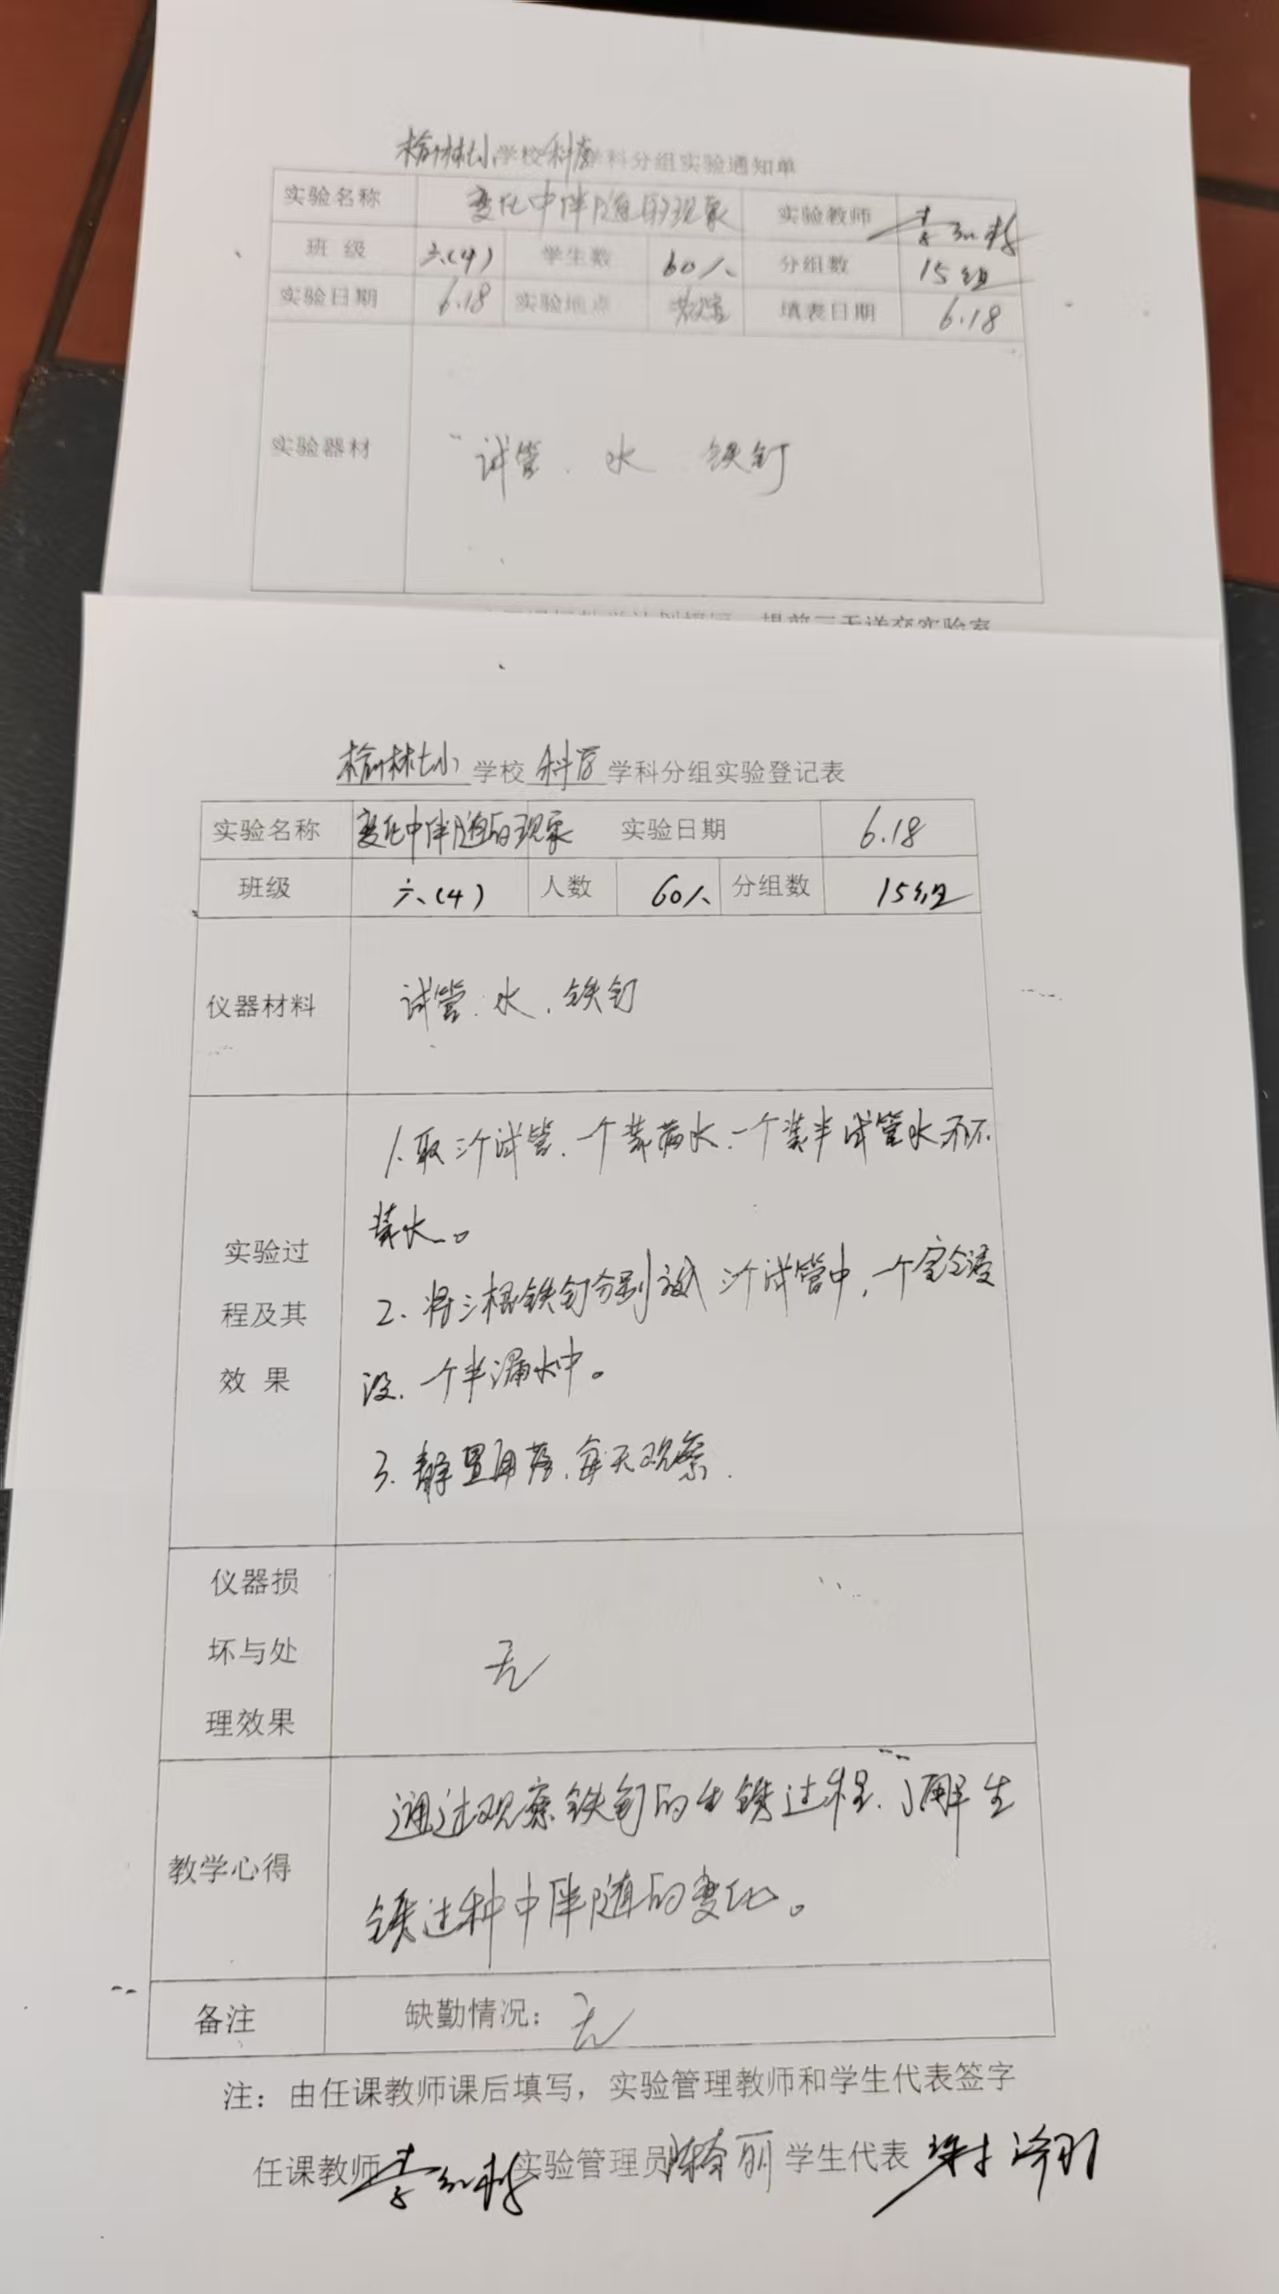 榆林小学校科学学科分组实验通知单
实验名称 变化中伴随的现象 实验教师 李
班级 六(4) 学生数 60人 分组数 15组
实验日期 6.18 实验地点 教室 填表日期 6.18
实验器材 试管、水、铁钉
提前三天送交实验室
榆林小学校科学学科分组实验登记表
实验名称 变化中伴随的现象 实验日期 6.18
班级 六(4) 人数 60人 分组数 15组
仪器材料 试管、水、铁钉
1、取三个试管、一个装满水、一个装半试管水
装水。
实验过
2、将三根铁钉分别放 三个试管中，一个完全浸
程及其
没、一个半漏水中。
效 果
3、静置 每天观察.
仪器损
坏与处 无
理效果
通过观察铁钉的生锈过程、了解生
教学心得
锈过种中伴随的变化。
备注 缺勤情况：无
注：由任课教师课后填写，实验管理教师和学生代表签字
任课教师 李 实验管理员 丽 学生代表